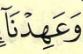 وَعَهِدْنَآ